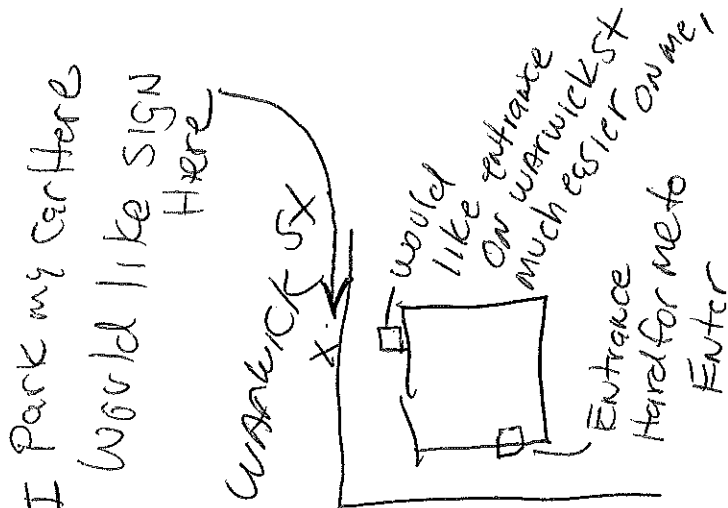 I Park my car Here
Would like SIGN
Here
WARWICK ST
X
would
like entrance
on WARWICK ST
much easier on me,
Entrance
Hard for me to
Enter